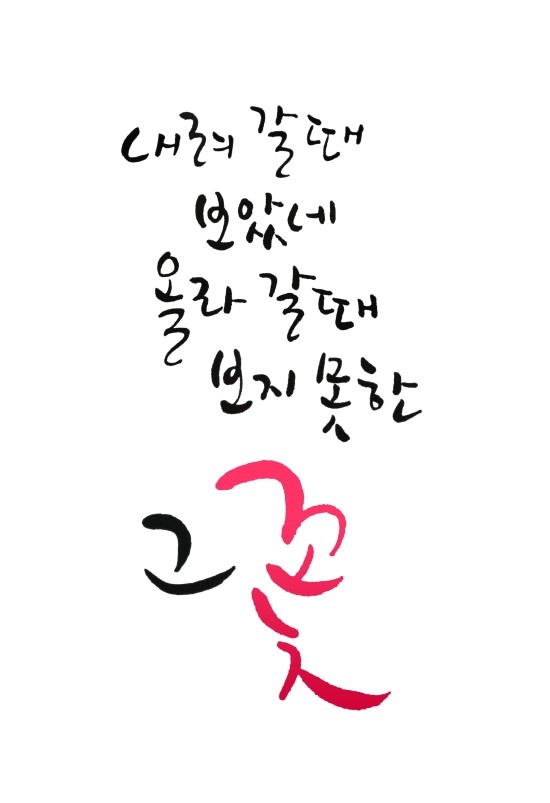 내려 갈때
보았네
올라 갈때
보지 못한
그 꽃